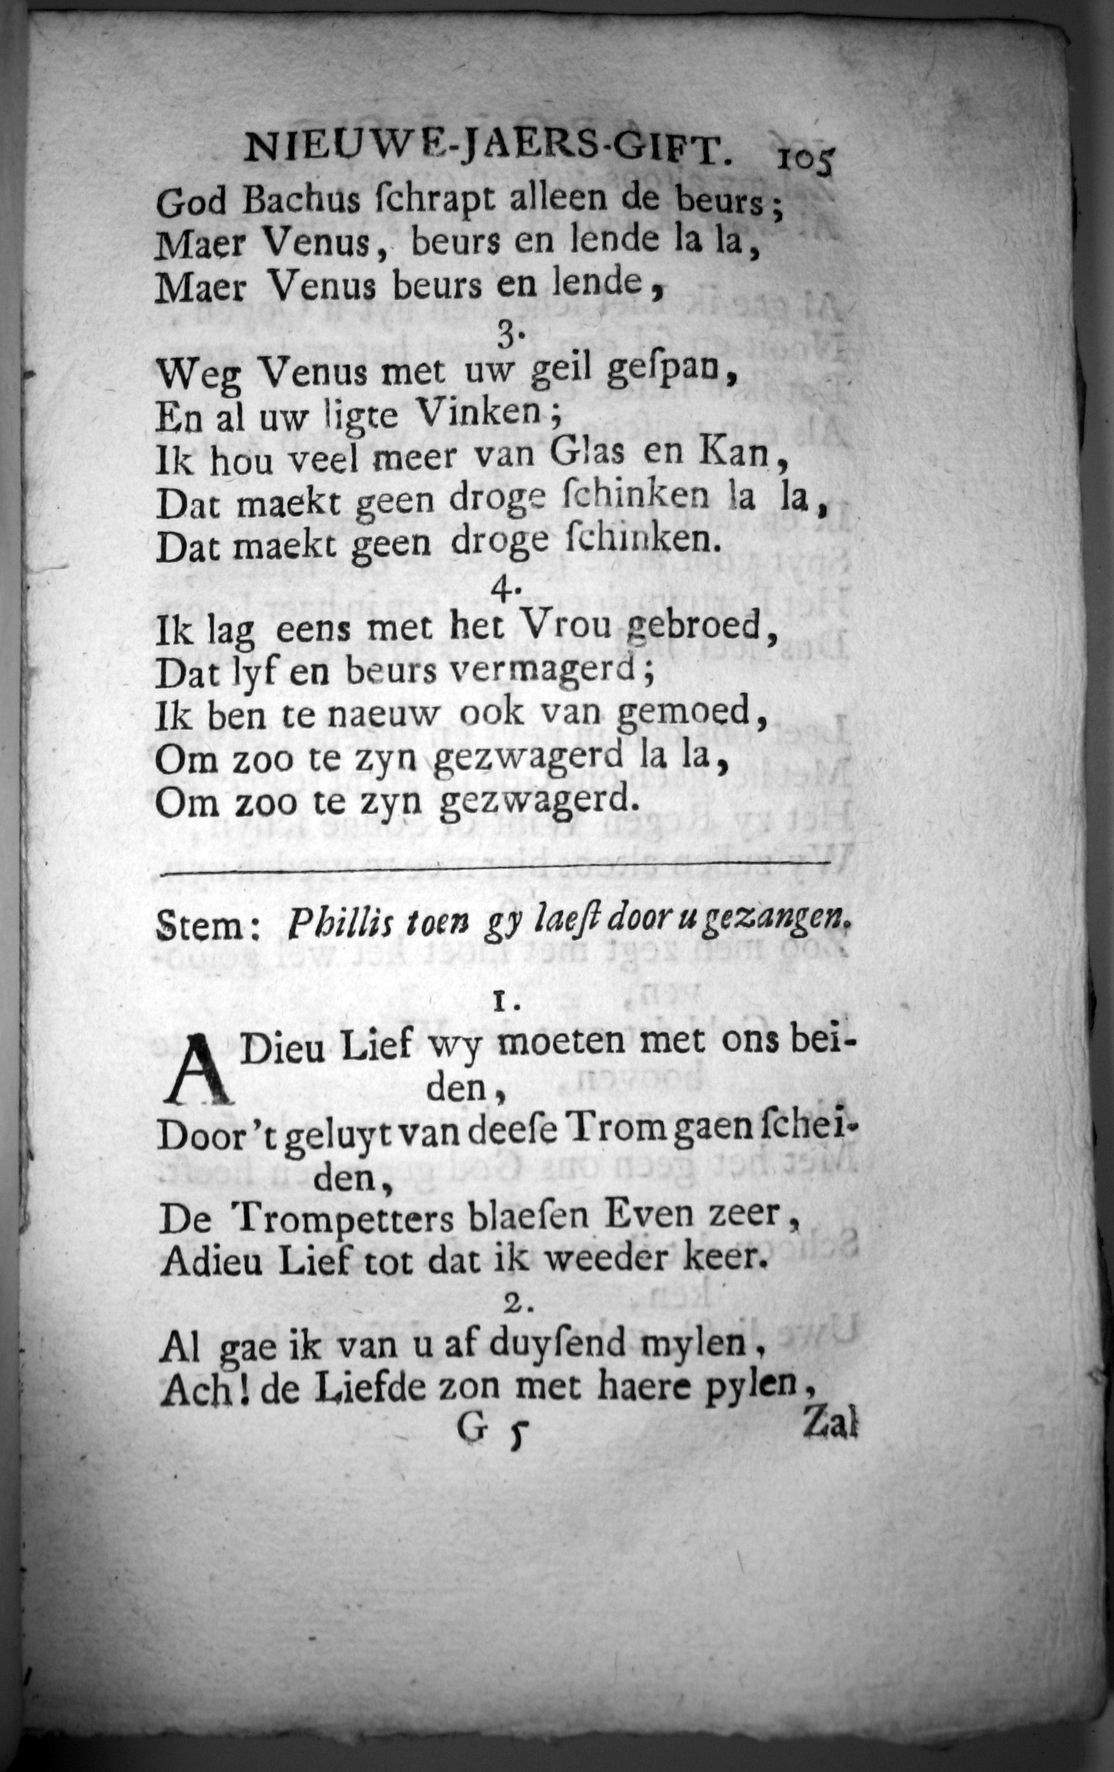 NIEUWE-JAERS-GIFT. 105
God Bachus ſchrapt alleen de beurs;
Maer Venus, beurs en lende la la,
Maer Venus beurs en lende,
3.
Weg Venus met uw geil geſpan,
En al uw ligte Vinken;
Ik hou veel meer van Glas en Kan,
Dat maekt geen droge ſchinken la la,
Dat maekt geen droge ſchinken.
4.
Ik lag eens met het Vrou gebroed,
Dat lyf en beurs vermagerd;
Ik ben te naeuw ook van gemoed,
Om zoo te zyn gezwagerd la la,
Om zoo te zyn gezwagerd.
Stem: Phillis toen gy laeſt door u gezangen.
1.
ADieu Lief wy moeten met ons bei-
den,
Door 't geluyt van deeſe Trom gaen ſchei-
den,
De Trompetters blaeſen Even zeer,
Adieu Lief tot dat ik weeder keer.
2.
Al gae ik van u af duyſend mylen,
Ach! de Liefde zon met haere pylen,
G 5 Zal